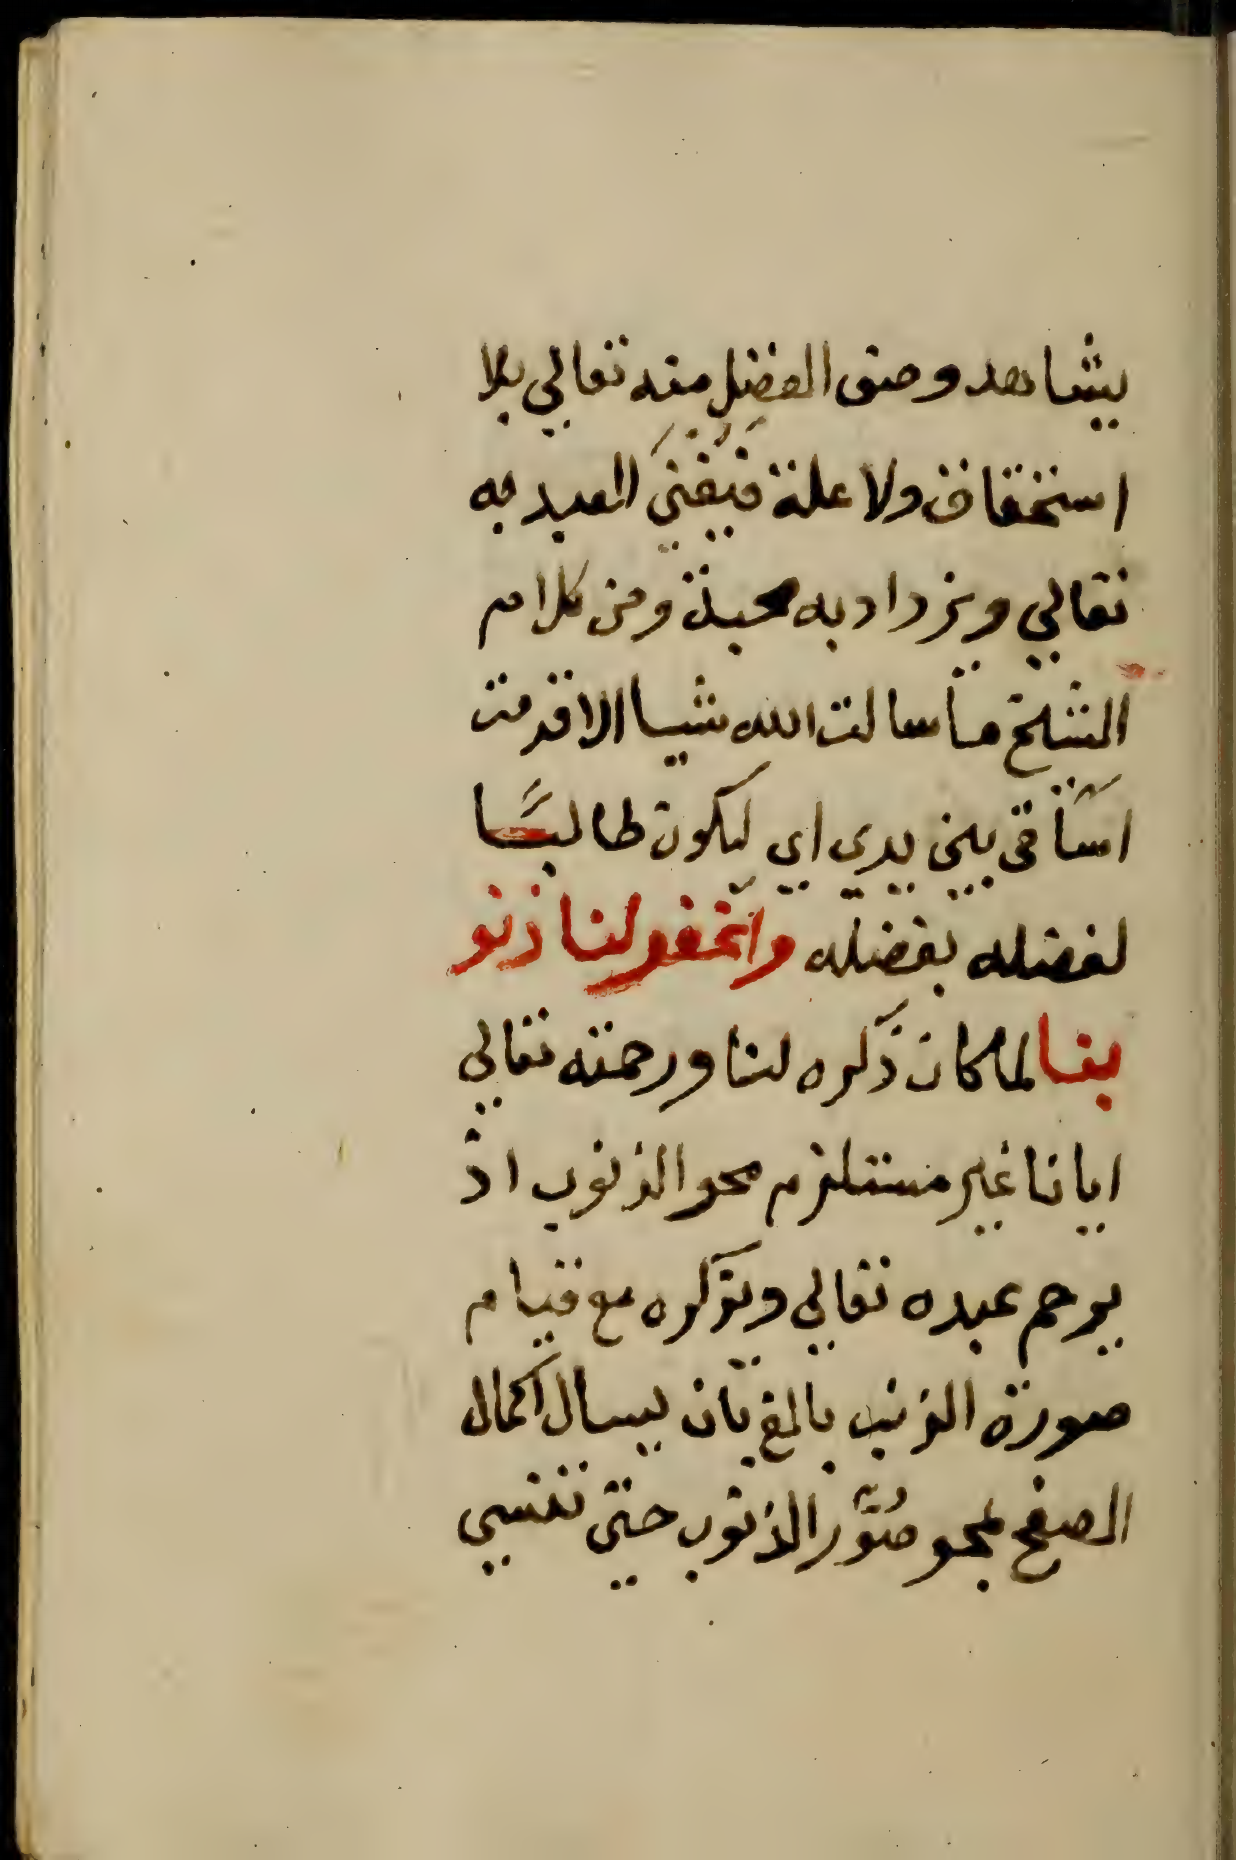 يشاهد وصف الفضل منه تعالي بلا
استحقاق ولا علة فيفني العبد به
تعالي ويزداد به محبة ومن كلام
الشيخ ما سالت الله شيا الا قدمت
اسآتي بين يدي اي ليكون طالبًا
لفضله بفضله واغفر لنا ذنو
بنا لما كان ذكره لنا ورحمته تعالي
ايانا غير مستلزم محو الذنوب اذ
يرحم عبده تعالي ويذكره مع قيام
صورة الذنب بالمغ بان يسال اكمال
الصفح بمحو صُوَر الذنوب حتي تنسي